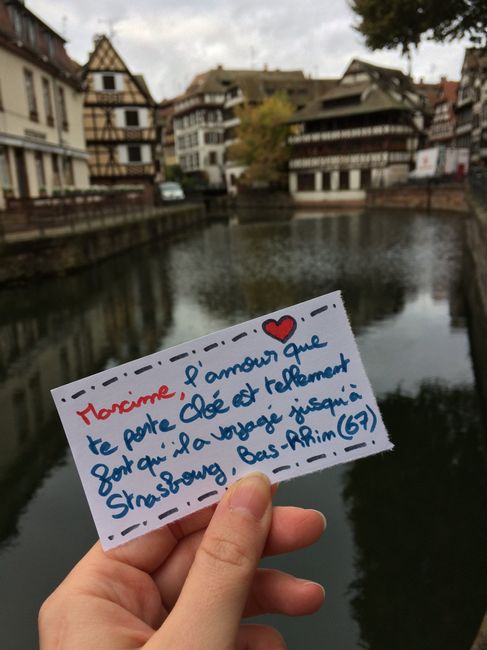 Maxime, l'amour que
te porte Cloé est tellement
fort qu'il a voyagé jusqu'à
Strasbourg, Bas-Rhim (67)